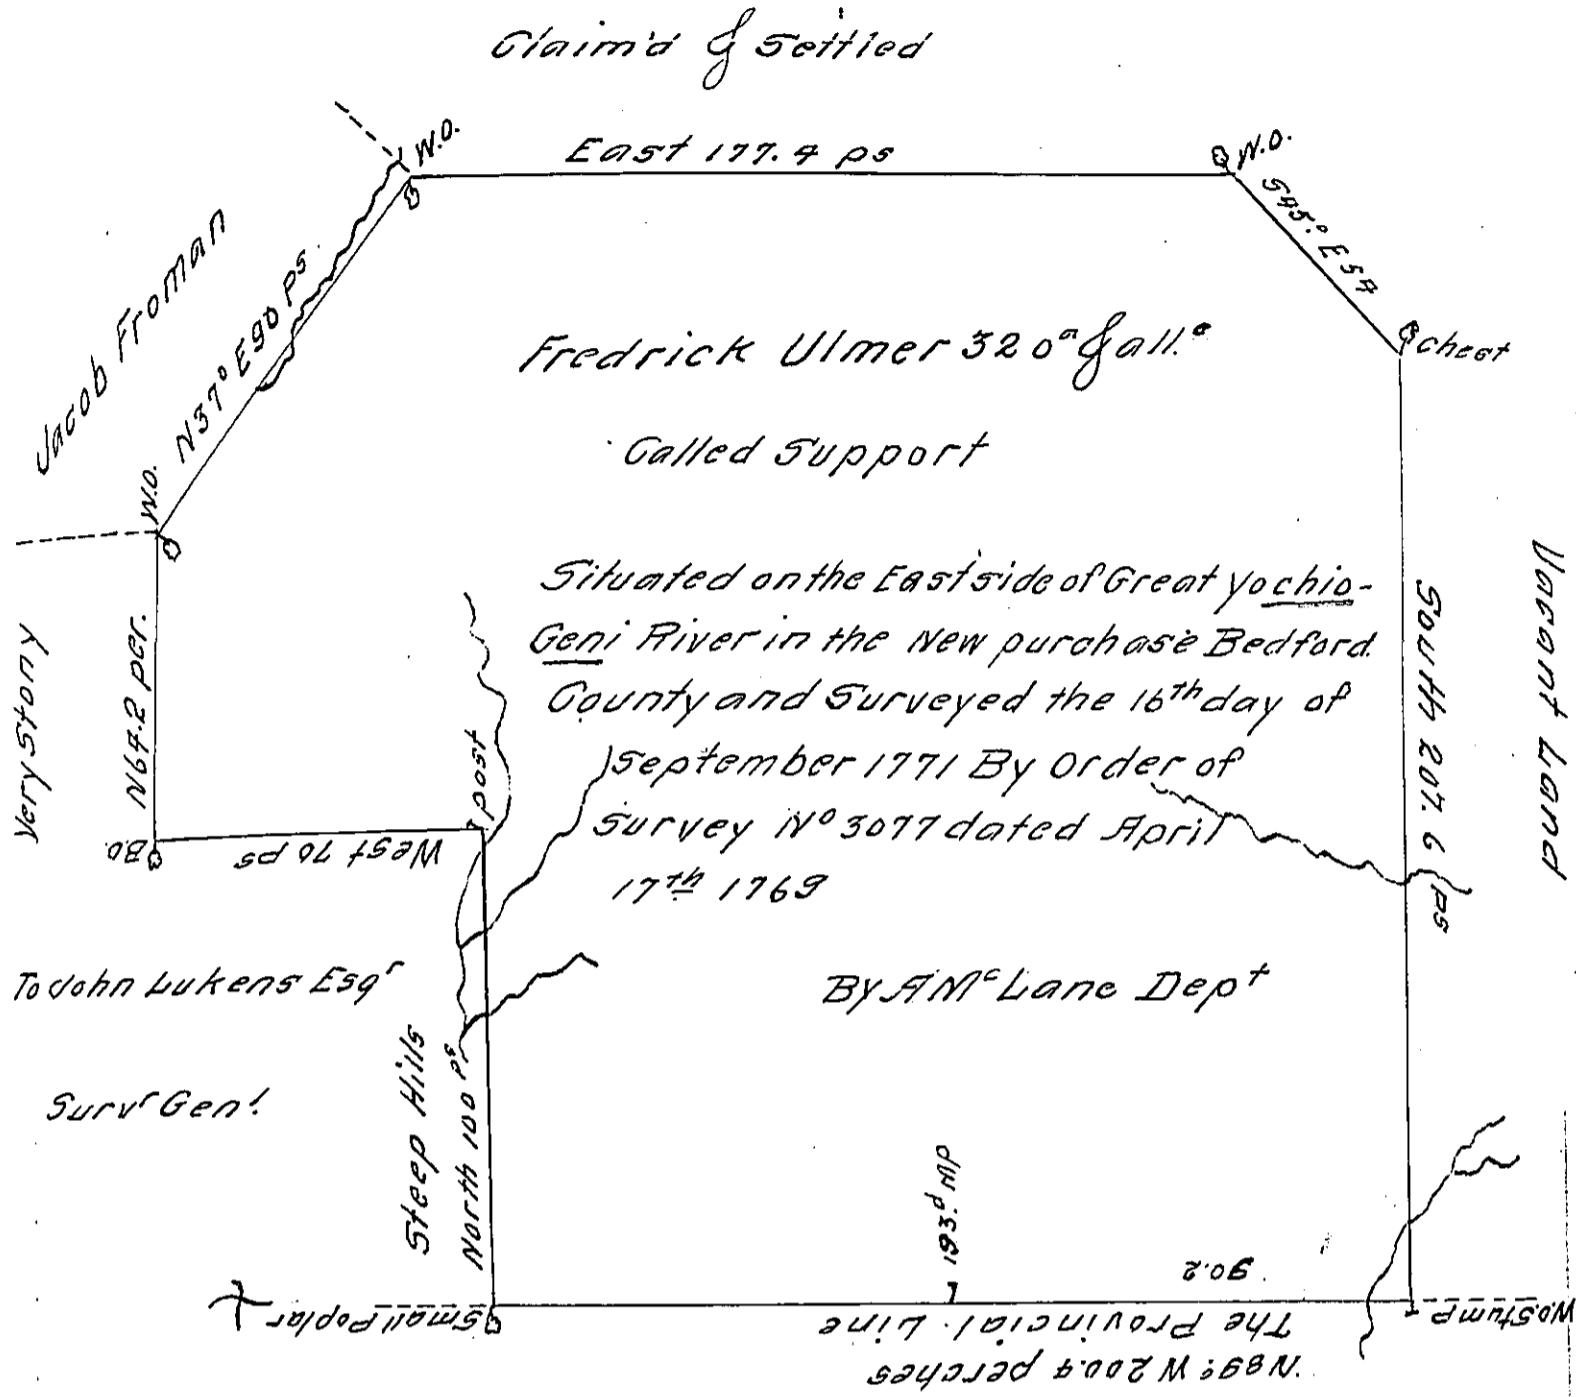 Claim'd & Settled
East 177.4 ps
W.O.
W.O.
S45.° E 54
chest
Jacob Froman
N37° E 90 ps.
W.O.
Fredrick Ulmer 320ᵃ & all.ᵉ
Called Support
Situated on the East side of Great Yochio-
Geni River in the New purchase Bedford
County and Surveyed the 16th day of
September 1771 By Order of
Survey Nº 3077 dated April
17th 1769
Very Stony
N 64.2 per.
Bo
West 70 ps
post
South 207.6 ps
Vacant Land
To John Lukens Esqr
Survr Genl.
By A McLane Dept
Steep Hills
North 100 ps
193.d MP
90.2
Small Poplar
The Provincial Line
N89° W 200.4 perches
W.O. Stump